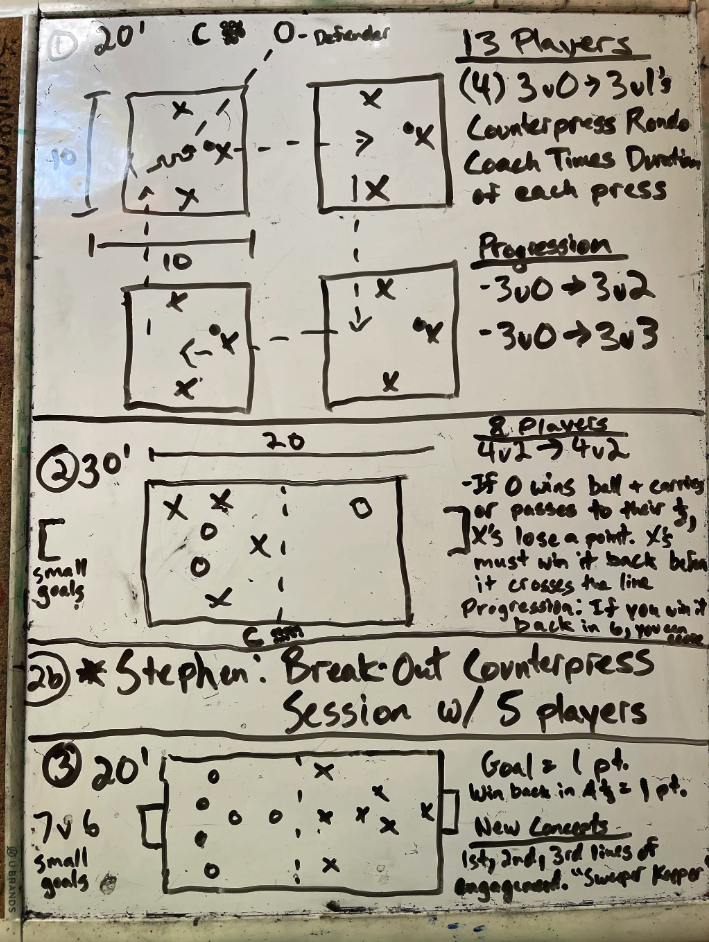 ① 20' C O - Defender
13 Players
(4) 3v0 → 3v1's
Counterpress Rondo
Coach Times Duration
of each press
10
10
Progression
- 3v0 → 3v2
- 3v0 → 3v3
X X X
X X X
X X X
X X X
② 30' 20
8 Players
4v2 → 4v2
- If O wins ball + carries
or passes to their ½,
X's lose a point. X's
must win it back before
it crosses the line
Progression: If you win it
back in 6, you can
small
goals
X X O
O X
O
X
C
2b * Stephen: Break-Out Counterpress
Session w/ 5 players
③ 20'
7v6
small
goals
Goal = 1 pt.
Win back in = 1 pt.
New Concepts
1st, 2nd, 3rd lines of
engagement. "Sweeper Keeper"
O X
O X
O O X X X
O X
O X
U BRANDS